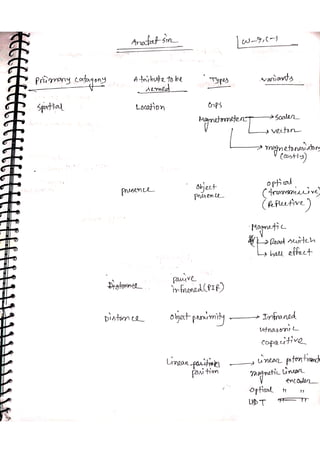 W-3, C-1
Primary Catagory Atribute to be sensed Types Variants
Spatial Location GPS
Magnetometer → Scaler
→ vector
→ magnetoresistive (costly)
presence object presence optical (transmissive) (reflective)
Magnetic
→ Read switch
→ hall effect
Distance passive infrared (PIR)
Distance object proximity → Infrared
Ultrasonic
capacitive
Linear position → Linear potentiom
position magnetic linear encoder
optical " "